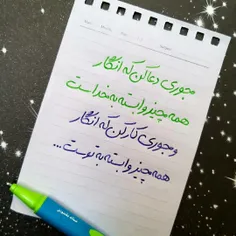 جوری دعا کن که انگار
همه چیز وابسته به خداست
و جوری کار کن که انگار
همه چیز وابسته به توست...